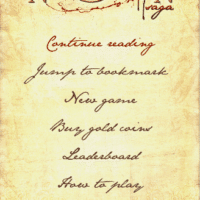 N N
saga
Continue reading
Jump to bookmark
New game
Buy gold coins
Leaderboard
How to play